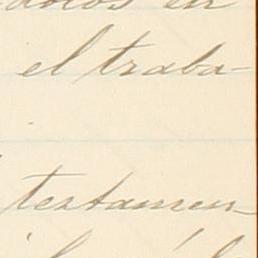 en
el traba-
testamen-